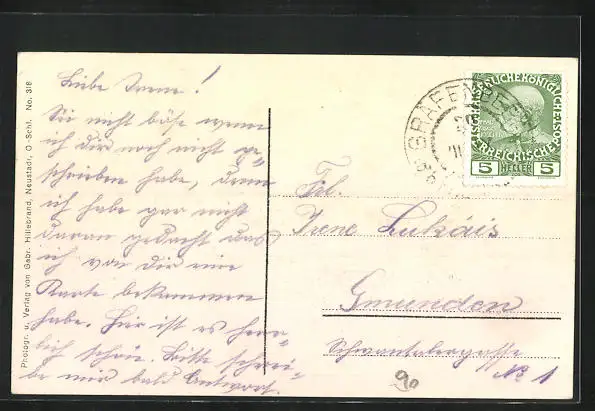 Liebe Irene!
Sei nicht böse wenn
ich dir noch nicht ge=
schrieben habe, denn
ich habe gar nicht
daran gedacht das
ich von dir eine
Karte bekommen
habe. Hier ist es herr=
lich schön. Bitte schrei=
be mir bald Antwort.
Photogr. u. Verlag von Gabr. Hillebrand, Neustadt, O.-Schl. No. 318
GRÄFEN
KAISERLICHE KÖNIGLICHE
ÖSTERREICHISCHE
5 HELLER 5
Frl.
Irene Lukáis
Gmunden
No 1
90